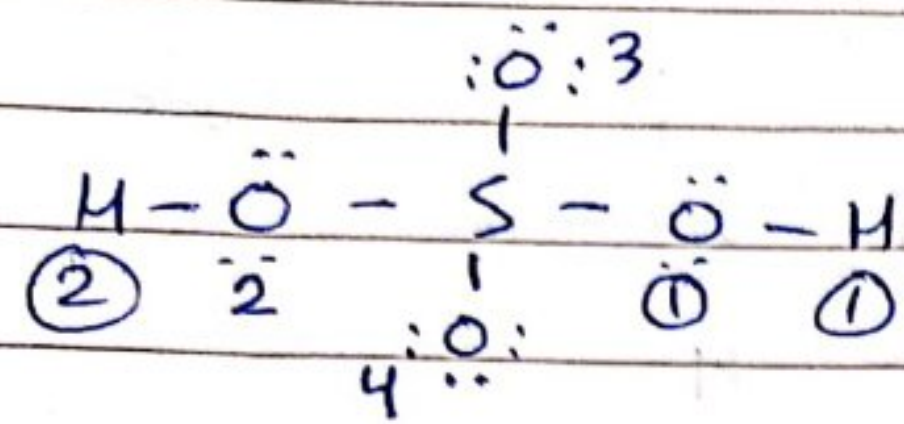 :Ö: 3
H - Ö - S - Ö - H
② 2 ① ①
:O:
4